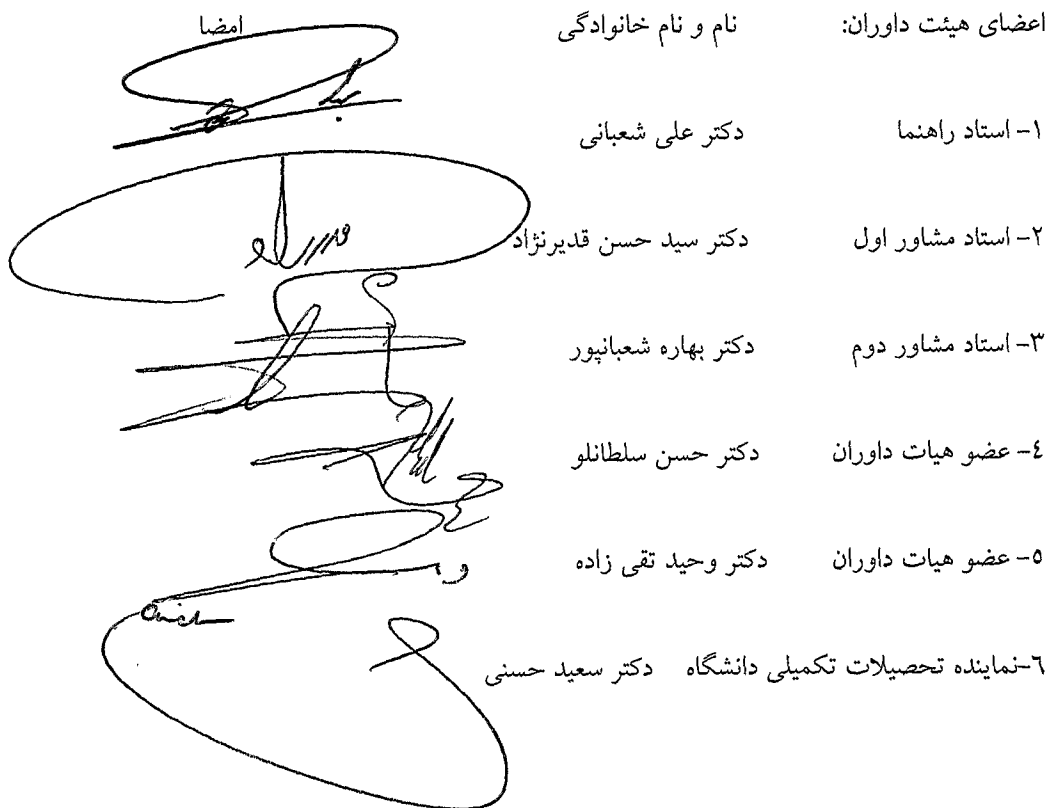 اعضای هیئت داوران: نام و نام خانوادگی امضا
۱- استاد راهنما دکتر علی شعبانی
۲- استاد مشاور اول دکتر سید حسن قدیرنژاد
۳- استاد مشاور دوم دکتر بهاره شعبانپور
٤- عضو هیات داوران دکتر حسن سلطانلو
٥- عضو هیات داوران دکتر وحید تقی زاده
٦-نماینده تحصیلات تکمیلی دانشگاه دکتر سعید حسنی